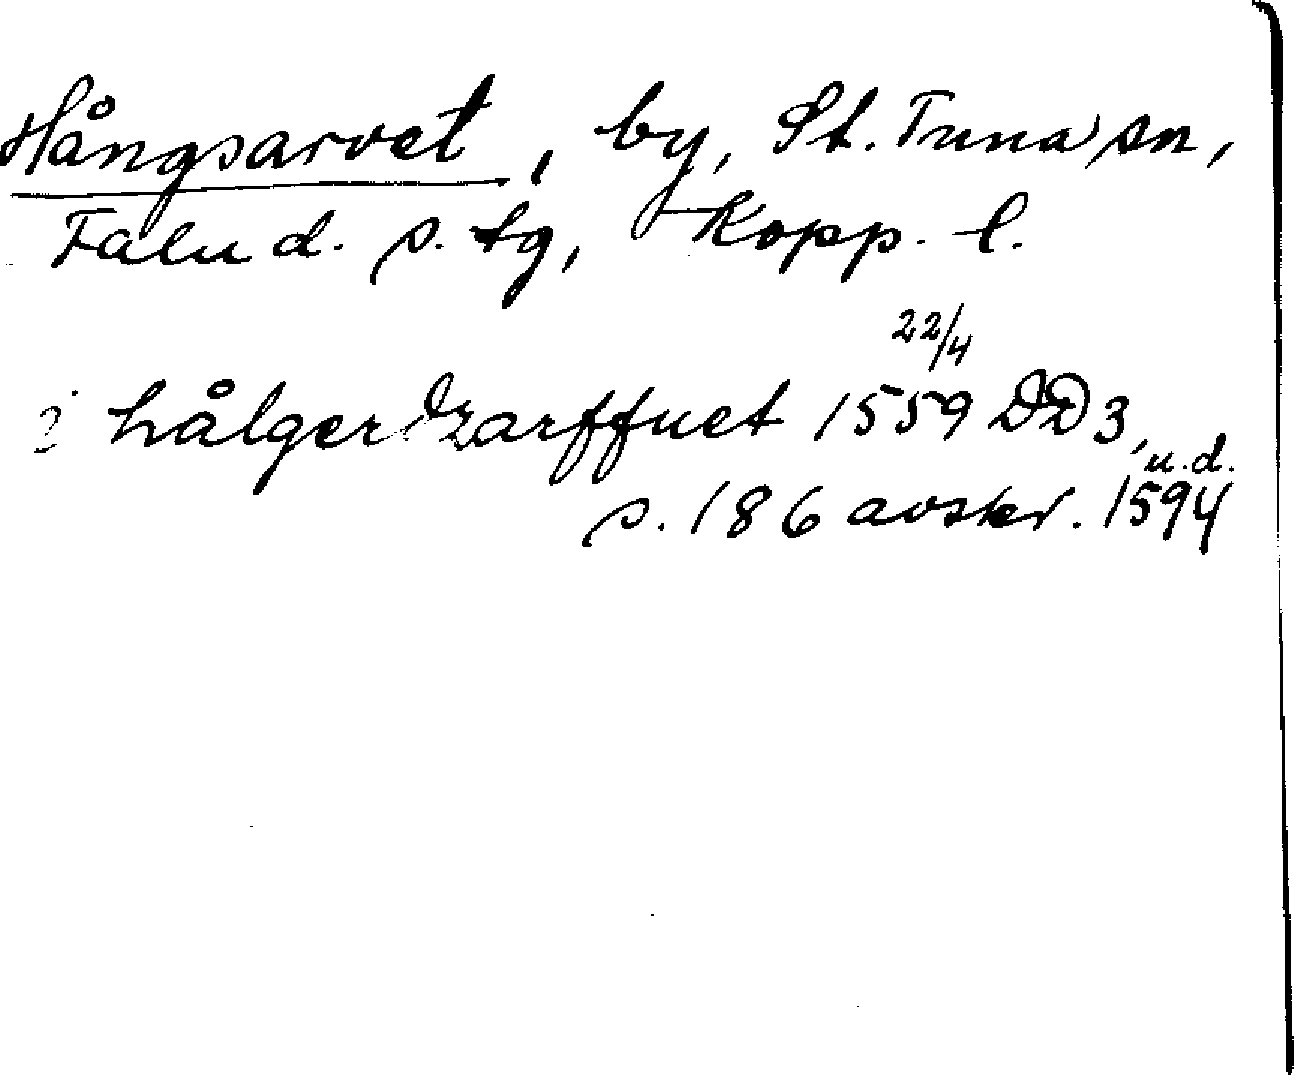 Hångsarvet, by, St. Tuna sn,
Falu d. s. tg, Kopp. l.
22/4
i hålgerdzarffuet 1559 DD3,
u.d.
s. 186 avskr. 1594